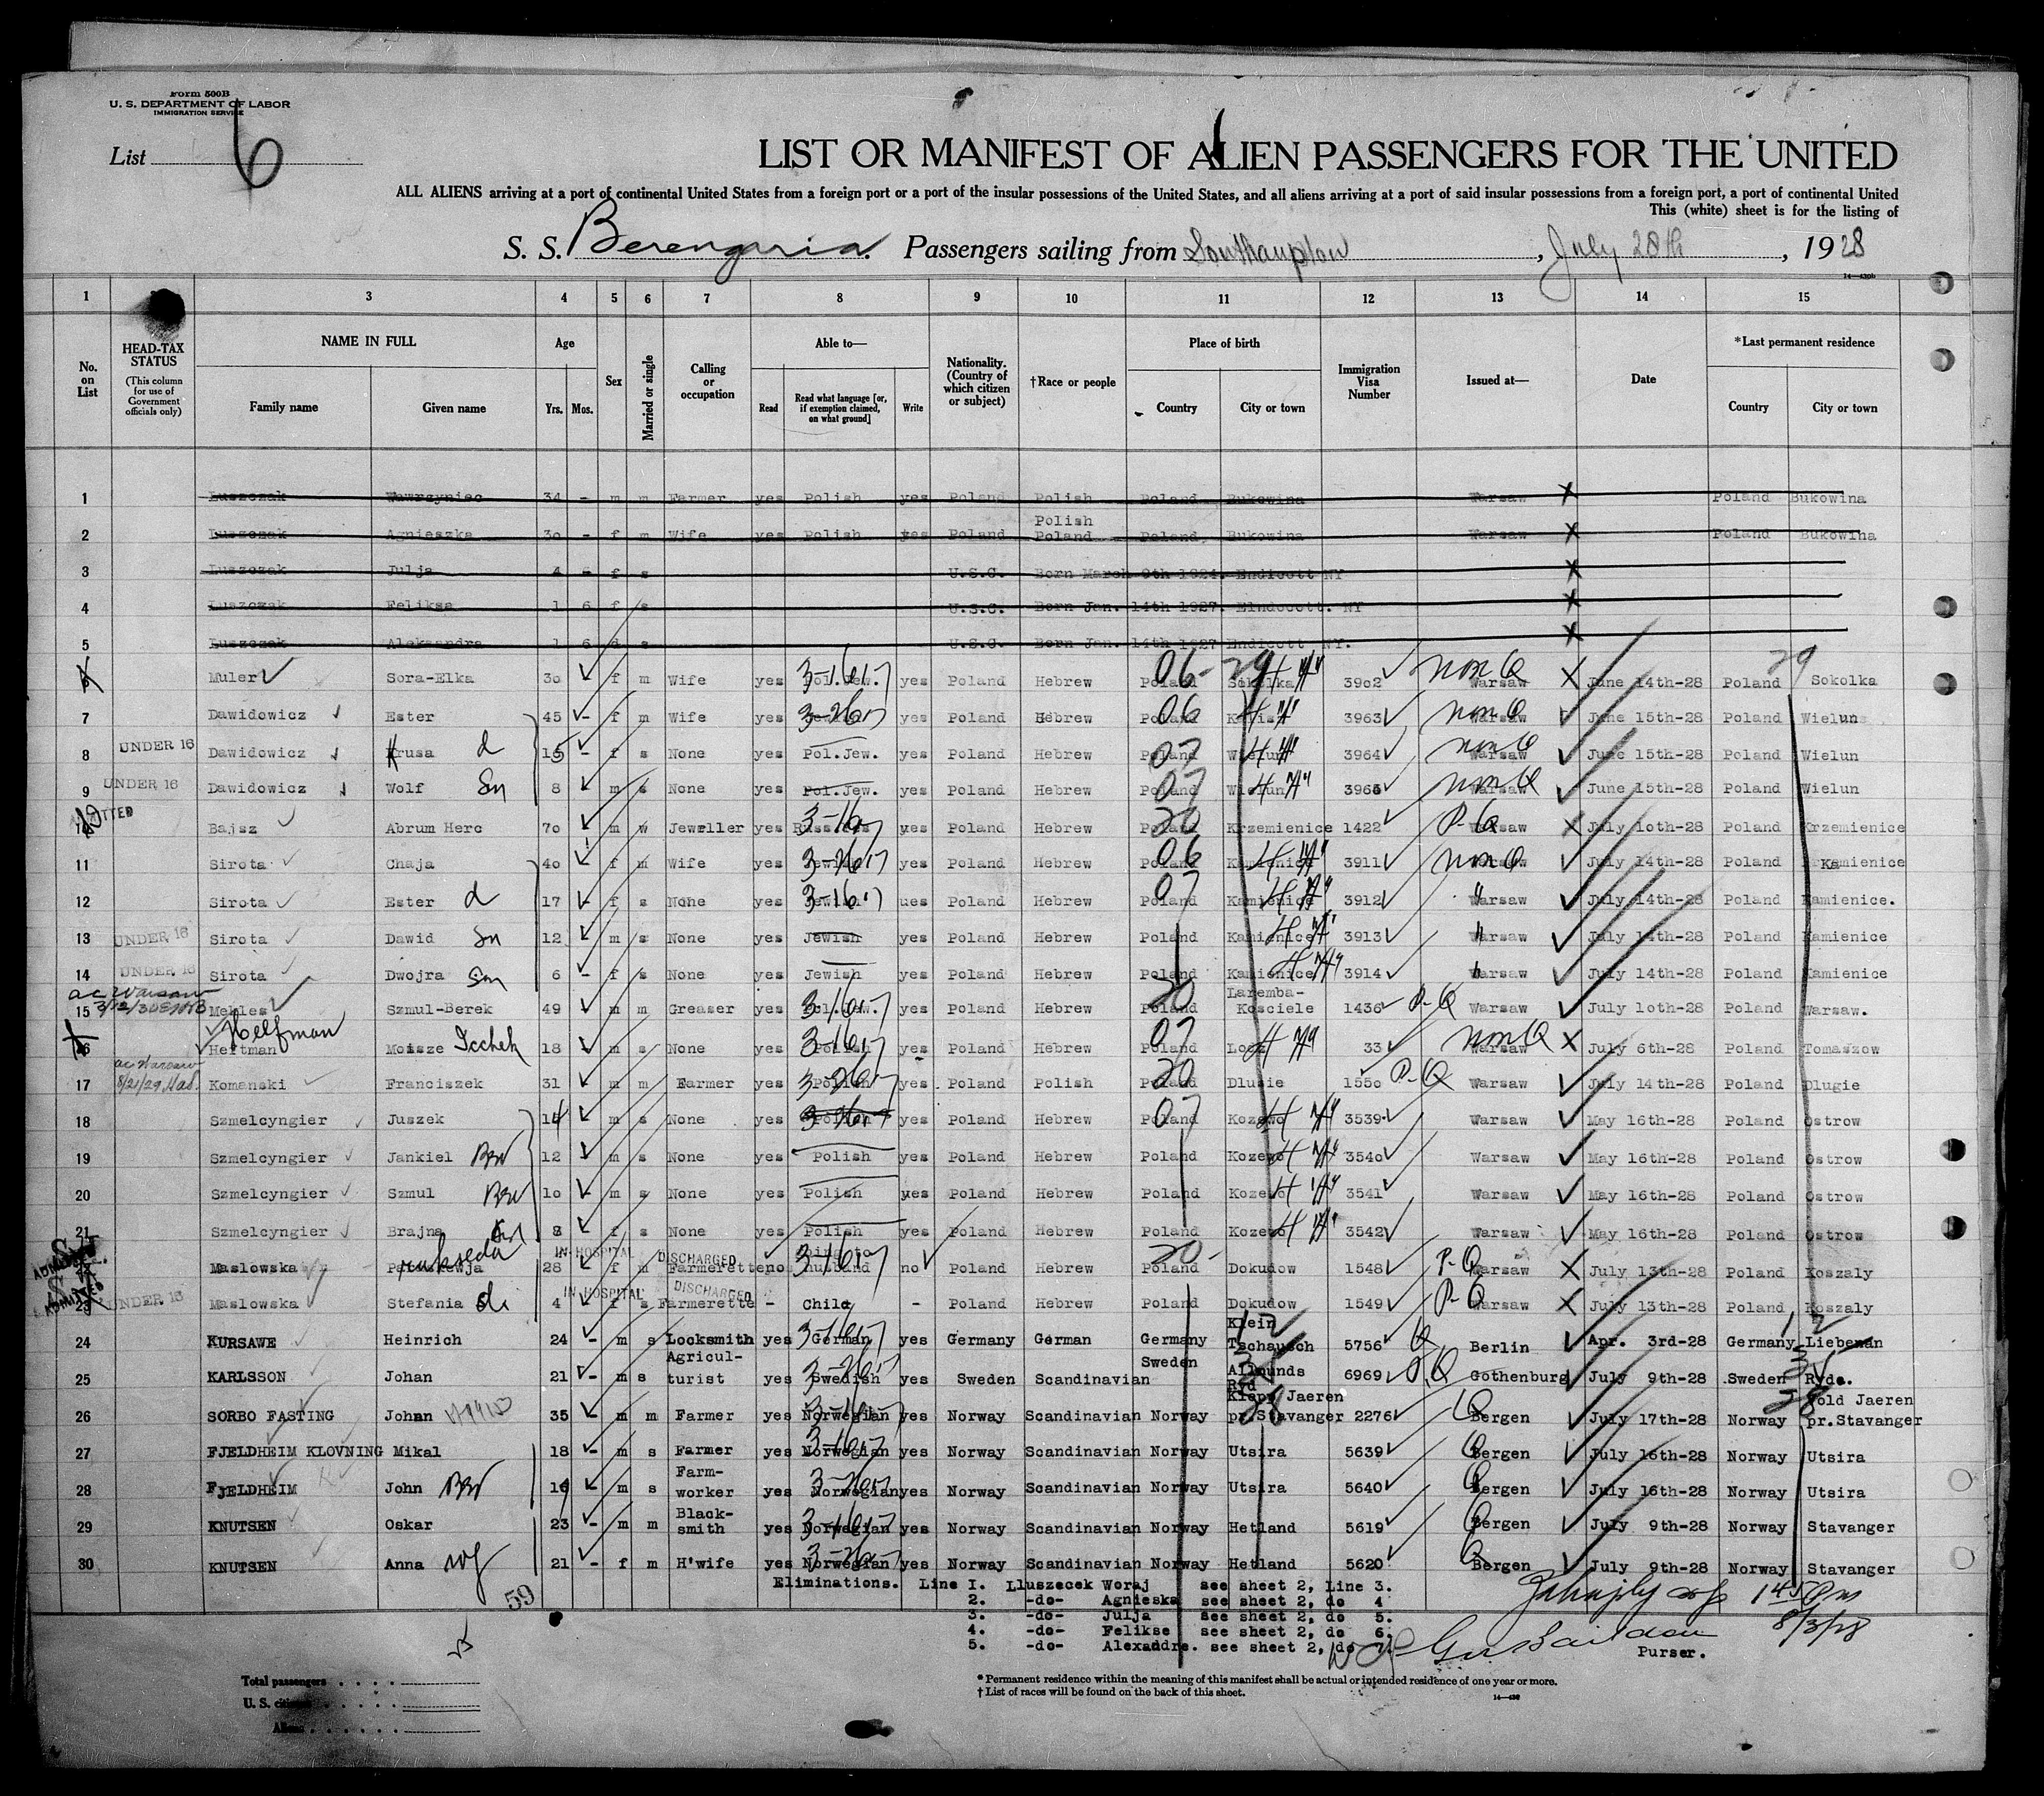 Form 500B
U. S. DEPARTMENT OF LABOR
IMMIGRATION SERVICE
List 6
LIST OR MANIFEST OF ALIEN PASSENGERS FOR THE UNITED
ALL ALIENS arriving at a port of continental United States from a foreign port or a port of the insular possessions of the United States, and all aliens arriving at a port of said insular possessions from a foreign port, a port of continental United
This (white) sheet is for the listing of
S. S. Berengaria. Passengers sailing from Southampton, July 28th, 1928
14—430b
1 3 4 5 6 7 8 9 10 11 12 13 14 15
No. on List
HEAD-TAX STATUS (This column for use of Government officials only)
NAME IN FULL Family name Given name
Age Yrs. Mos.
Sex
Married or single
Calling or occupation
Able to— Read Read what language [or, if exemption claimed, on what ground] Write
Nationality. (Country of which citizen or subject)
†Race or people
Place of birth Country City or town
Immigration Visa Number
Issued at—
Date
*Last permanent residence Country City or town
1 Luszczak Wawrzyniec 34 - m m Farmer yes Polish yes Poland Polish Poland Bukowina Warsaw X Poland Bukowina
2 Luszczak Agnieszka 30 - f m Wife yes Polish yes Poland Polish Poland Poland Bukowina Warsaw X Poland Bukowina
3 Luszczak Julja 4 - f s U.S.C. Born March 9th 1924. Endicott NY X
4 Luszczak Feliksa 1 6 f s U.S.C. Born Jan. 14th 1927. Elndocott. NY X
5 Luszczak Aleksandra 1 6 d s U.S.C. Born Jan. 14th 1927 Endicott NY. X
6 Muler Sora-Elka 30 f m Wife yes Pol.Jew. yes Poland Hebrew Poland Sokolka 3902 non Q Warsaw X June 14th-28 Poland Sokolka
7 Dawidowicz Ester 45 - f m Wife yes yes Poland Hebrew Poland 3963 non Q Warsaw June 15th-28 Poland Wielun
8 UNDER 16 Dawidowicz Krusa d 15 - f s None yes Pol.Jew. yes Poland Hebrew Poland Wielun 3964 non Q Warsaw June 15th-28 Poland Wielun
9 UNDER 16 Dawidowicz Wolf Sn 8 m s None yes Pol.Jew. yes Poland Hebrew Poland Wielun 3965 non Q Warsaw June 15th-28 Poland Wielun
10 ADMITTED Bajsz Abrum Herc 70 m w Jeweller yes yes Poland Hebrew Poland Krzemienice 1422 P-Q Warsaw X July 10th-28 Poland Krzemienice
11 Sirota Chaja 40 f m Wife yes Jewish yes Poland Hebrew Poland Kamienice 3911 non Q Warsaw July 14th-28 Poland Kamienice
12 Sirota Ester d 17 - f s None yes Jewish ues Poland Hebrew Poland Kamienice 3912 " Warsaw July 14th-28 Poland Kamienice.
13 UNDER 16 Sirota Dawid Sn 12 m s None yes Jewish yes Poland Hebrew Poland Kamienice 3913 " Warsaw July 14th-28 Poland Kamienice
14 UNDER 16 Sirota Dwojra Sn 6 - f s None yes Jewish yes Poland Hebrew Poland Kamienice 3914 " Warsaw July 14th-28 Poland Kamienice
ac Warsaw
15 Mekles Szmul-Berek 49 m m Greaser yes Pol.Jew. yes Poland Hebrew Poland Laremba-Kosciele 1436 P-Q Warsaw July 10th-28 Poland Warsaw.
16 Helfman Hertman Moisze Icchek 18 m s None yes Polish yes Poland Hebrew Poland 33 non Q Warsaw X July 6th-28 Poland Tomaszow
ac Warsaw 8/21/29
17 Komanski Franciszek 31 m m Farmer yes Polish yes Poland Polish Poland Dlusie 1550 P-Q Warsaw July 14th-28 Poland Dlugie
18 Szmelcyngier Juszek 14 m s None yes Polish yes Poland Hebrew Poland Kozewo 3539 Warsaw May 16th-28 Poland Ostrow
19 Szmelcyngier Jankiel Bro 12 m s None yes Polish yes Poland Hebrew Poland Kozewo 3540 Warsaw May 16th-28 Poland Ostrow
20 Szmelcyngier Szmul Bro 10 m s None yes Polish yes Poland Hebrew Poland Kozewo 3541 Warsaw May 16th-28 Poland Ostrow
21 Szmelcyngier Brajna 8 f s None yes Polish yes Poland Hebrew Poland Kozewo 3542 Warsaw May 16th-28 Poland Ostrow
ADMITTED Maslowska IN HOSPITAL DISCHARGED 28 f m Farmerette no husband no Poland Hebrew Poland Dokudow 1548 P-Q Warsaw X July 13th-28 Poland Koszaly
23 ADMITTED UNDER 16 Maslowska Stefania d IN HOSPITAL DISCHARGED 4 f s Farmerette - Child - Poland Hebrew Poland Dokudow 1549 P-Q Warsaw X July 13th-28 Poland Koszaly
24 KURSAWE Heinrich 24 - m s Locksmith yes German yes Germany German Germany Klein Tschausch 5756 Q Berlin Apr. 3rd-28 Germany Liebenan
25 KARLSSON Johan 21 - m s Agricul-turist yes Swedish yes Sweden Scandinavian Sweden Allmunds Ryd 6969 Gothenburg July 9th-28 Sweden Ryde.
26 SORBO FASTING Johan 35 m m Farmer yes Norwegian yes Norway Scandinavian Norway Klepp Jaeren pr.Stavanger 2276 Q Bergen July 17th-28 Norway Vold Jaeren pr.Stavanger
27 FJELDHEIM KLOVNING Mikal 18 - m s Farmer yes Norwegian yes Norway Scandinavian Norway Utsira 5639 Q Bergen July 16th-28 Norway Utsira
28 FJELDHEIM John Bro 16 m s Farm-worker yes Norwegian yes Norway Scandinavian Norway Utsira 5640 Q Bergen July 16th-28 Norway Utsira
29 KNUTSEN Oskar 23 - m m Black-smith yes Norwegian yes Norway Scandinavian Norway Hetland 5619 Q Bergen July 9th-28 Norway Stavanger
30 KNUTSEN Anna wf 21 - f m H'wife yes Norwegian yes Norway Scandinavian Norway Hetland 5620 Q Bergen July 9th-28 Norway Stavanger
59
Eliminations. Line I. Lluszecek Woraj see sheet 2, Line 3.
2. -do- Agnieska see sheet 2, do 4
3. -do- Julja see sheet 2, do 5.
4. -do- Felikse see sheet 2, do 6.
5. -do- Alexaddre. see sheet 2, do
1 45 Pm
8/3/28
Purser.
Total passengers
U. S. citizens
Aliens
* Permanent residence within the meaning of this manifest shall be actual or intended residence of one year or more.
† List of races will be found on the back of this sheet.
14—430